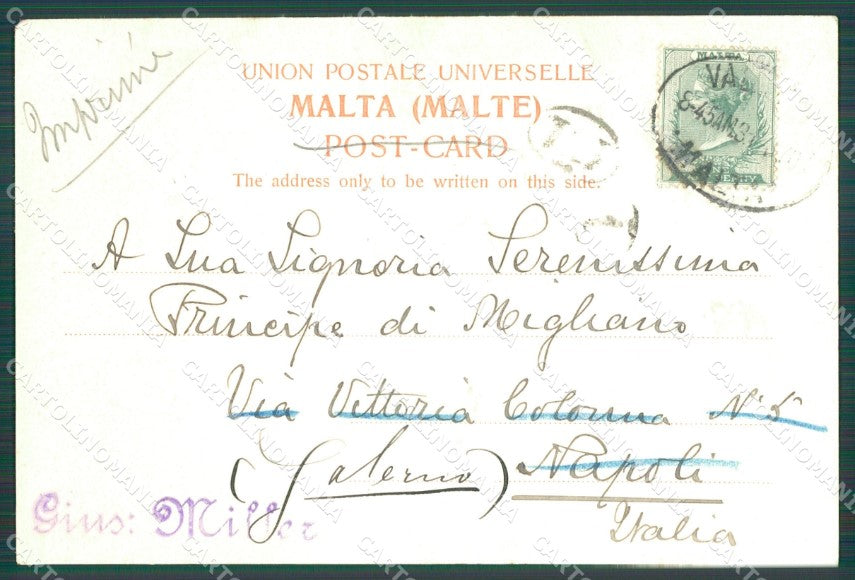 Imprimé
UNION POSTALE UNIVERSELLE
MALTA (MALTE)
POST-CARD
The address only to be written on this side.
MALTA
VA
8-45AM
MALTA
A Sua Signoria Serenissima
Principe di Migliano
Via Vittoria Colonna N. 5
(Salerno) Napoli
Italia
Gius: Miller
CARTOLINOMANIA